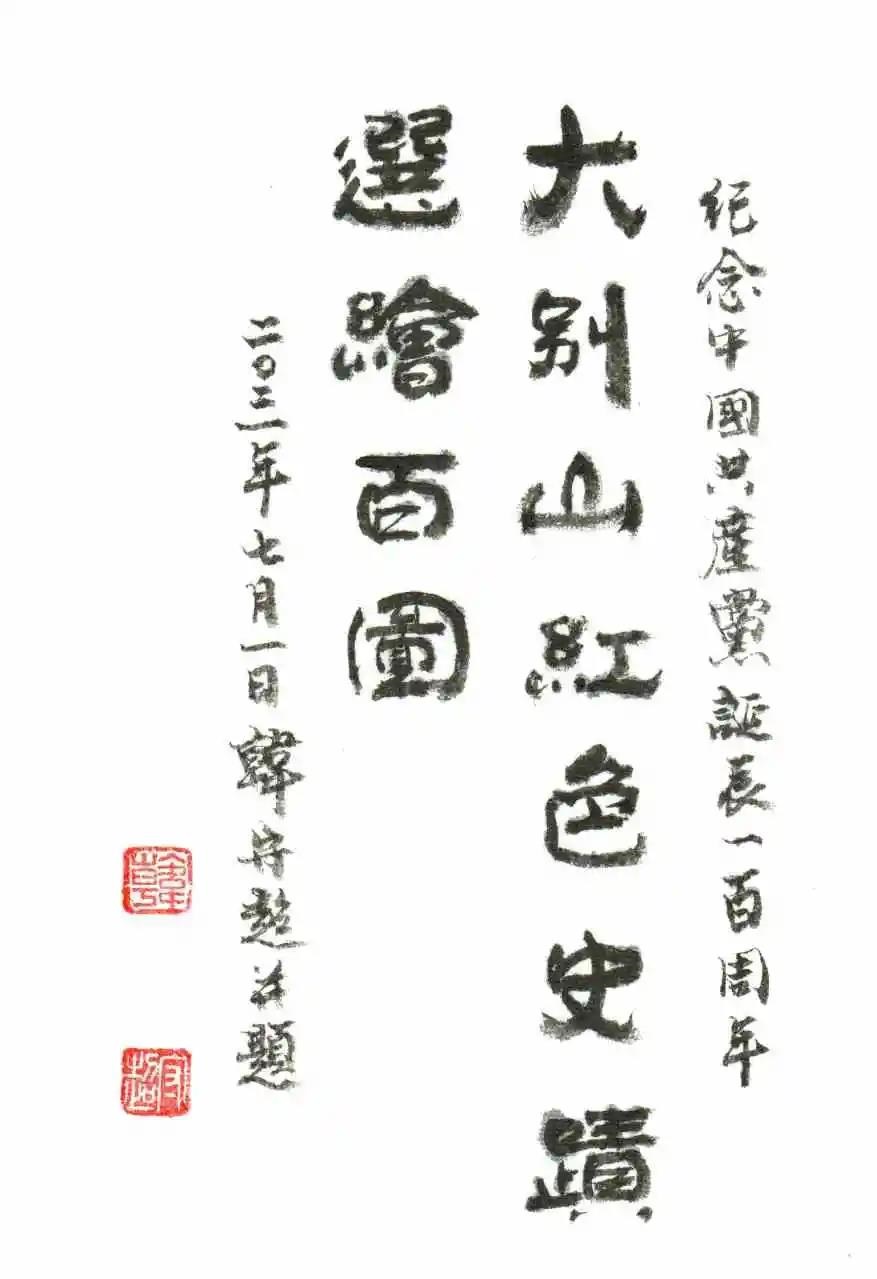 纪念中國共産黨誕辰一百周年
大别山紅色史蹟
選繪百圖
二〇二一年七月一日韓守并題